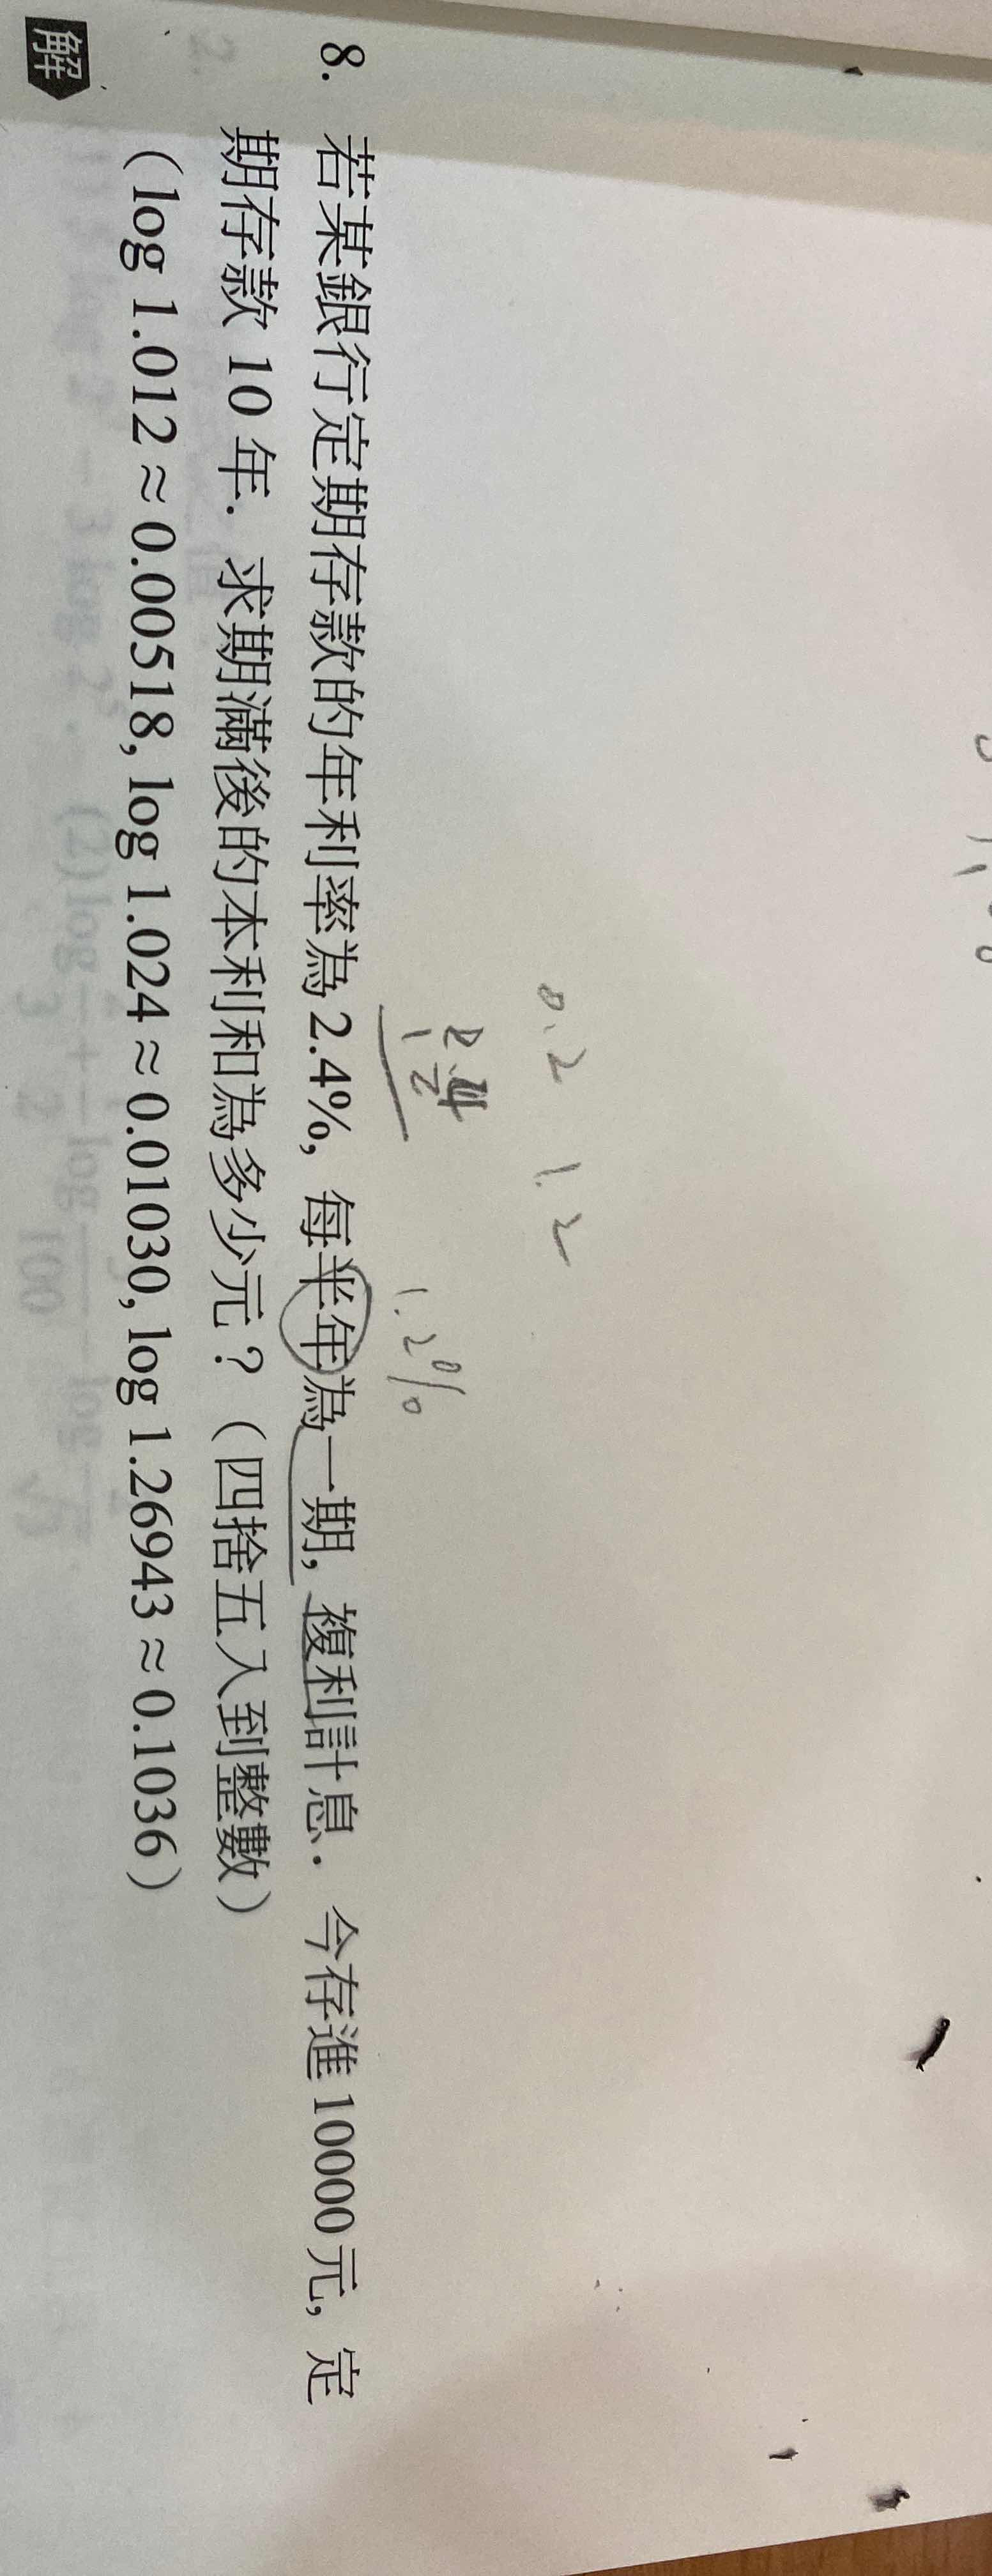 8. 若某銀行定期存款的年利率為 2.4%, 每半年為一期, 複利計息. 今存進 10000 元, 定
期存款 10 年. 求期滿後的本利和為多少元？（四捨五入到整數）
（log 1.012 ≈ 0.00518, log 1.024 ≈ 0.01030, log 1.26943 ≈ 0.1036）
解
0.2 1.2
1.2%